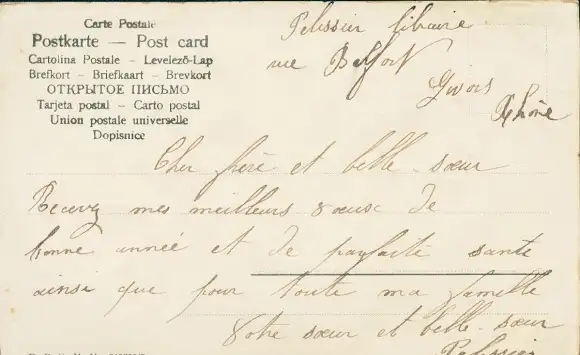 Carte Postale
Postkarte — Post card
Cartolina Postale – Levelező-Lap
Brefkort – Briefkaart – Brevkort
ОТКРЫТОЕ ПИСЬМО
Tarjeta postal – Carto postal
Union postale universelle
Dopisnice
Pelissier libraire
rue Belfort
Givors
Rhône
Cher frère et belle-sœur
Recevez mes meilleurs vœux de
bonne année et de parfaite santé
ainsi que pour toute ma famille
Votre sœur et belle-sœur
Pelissier